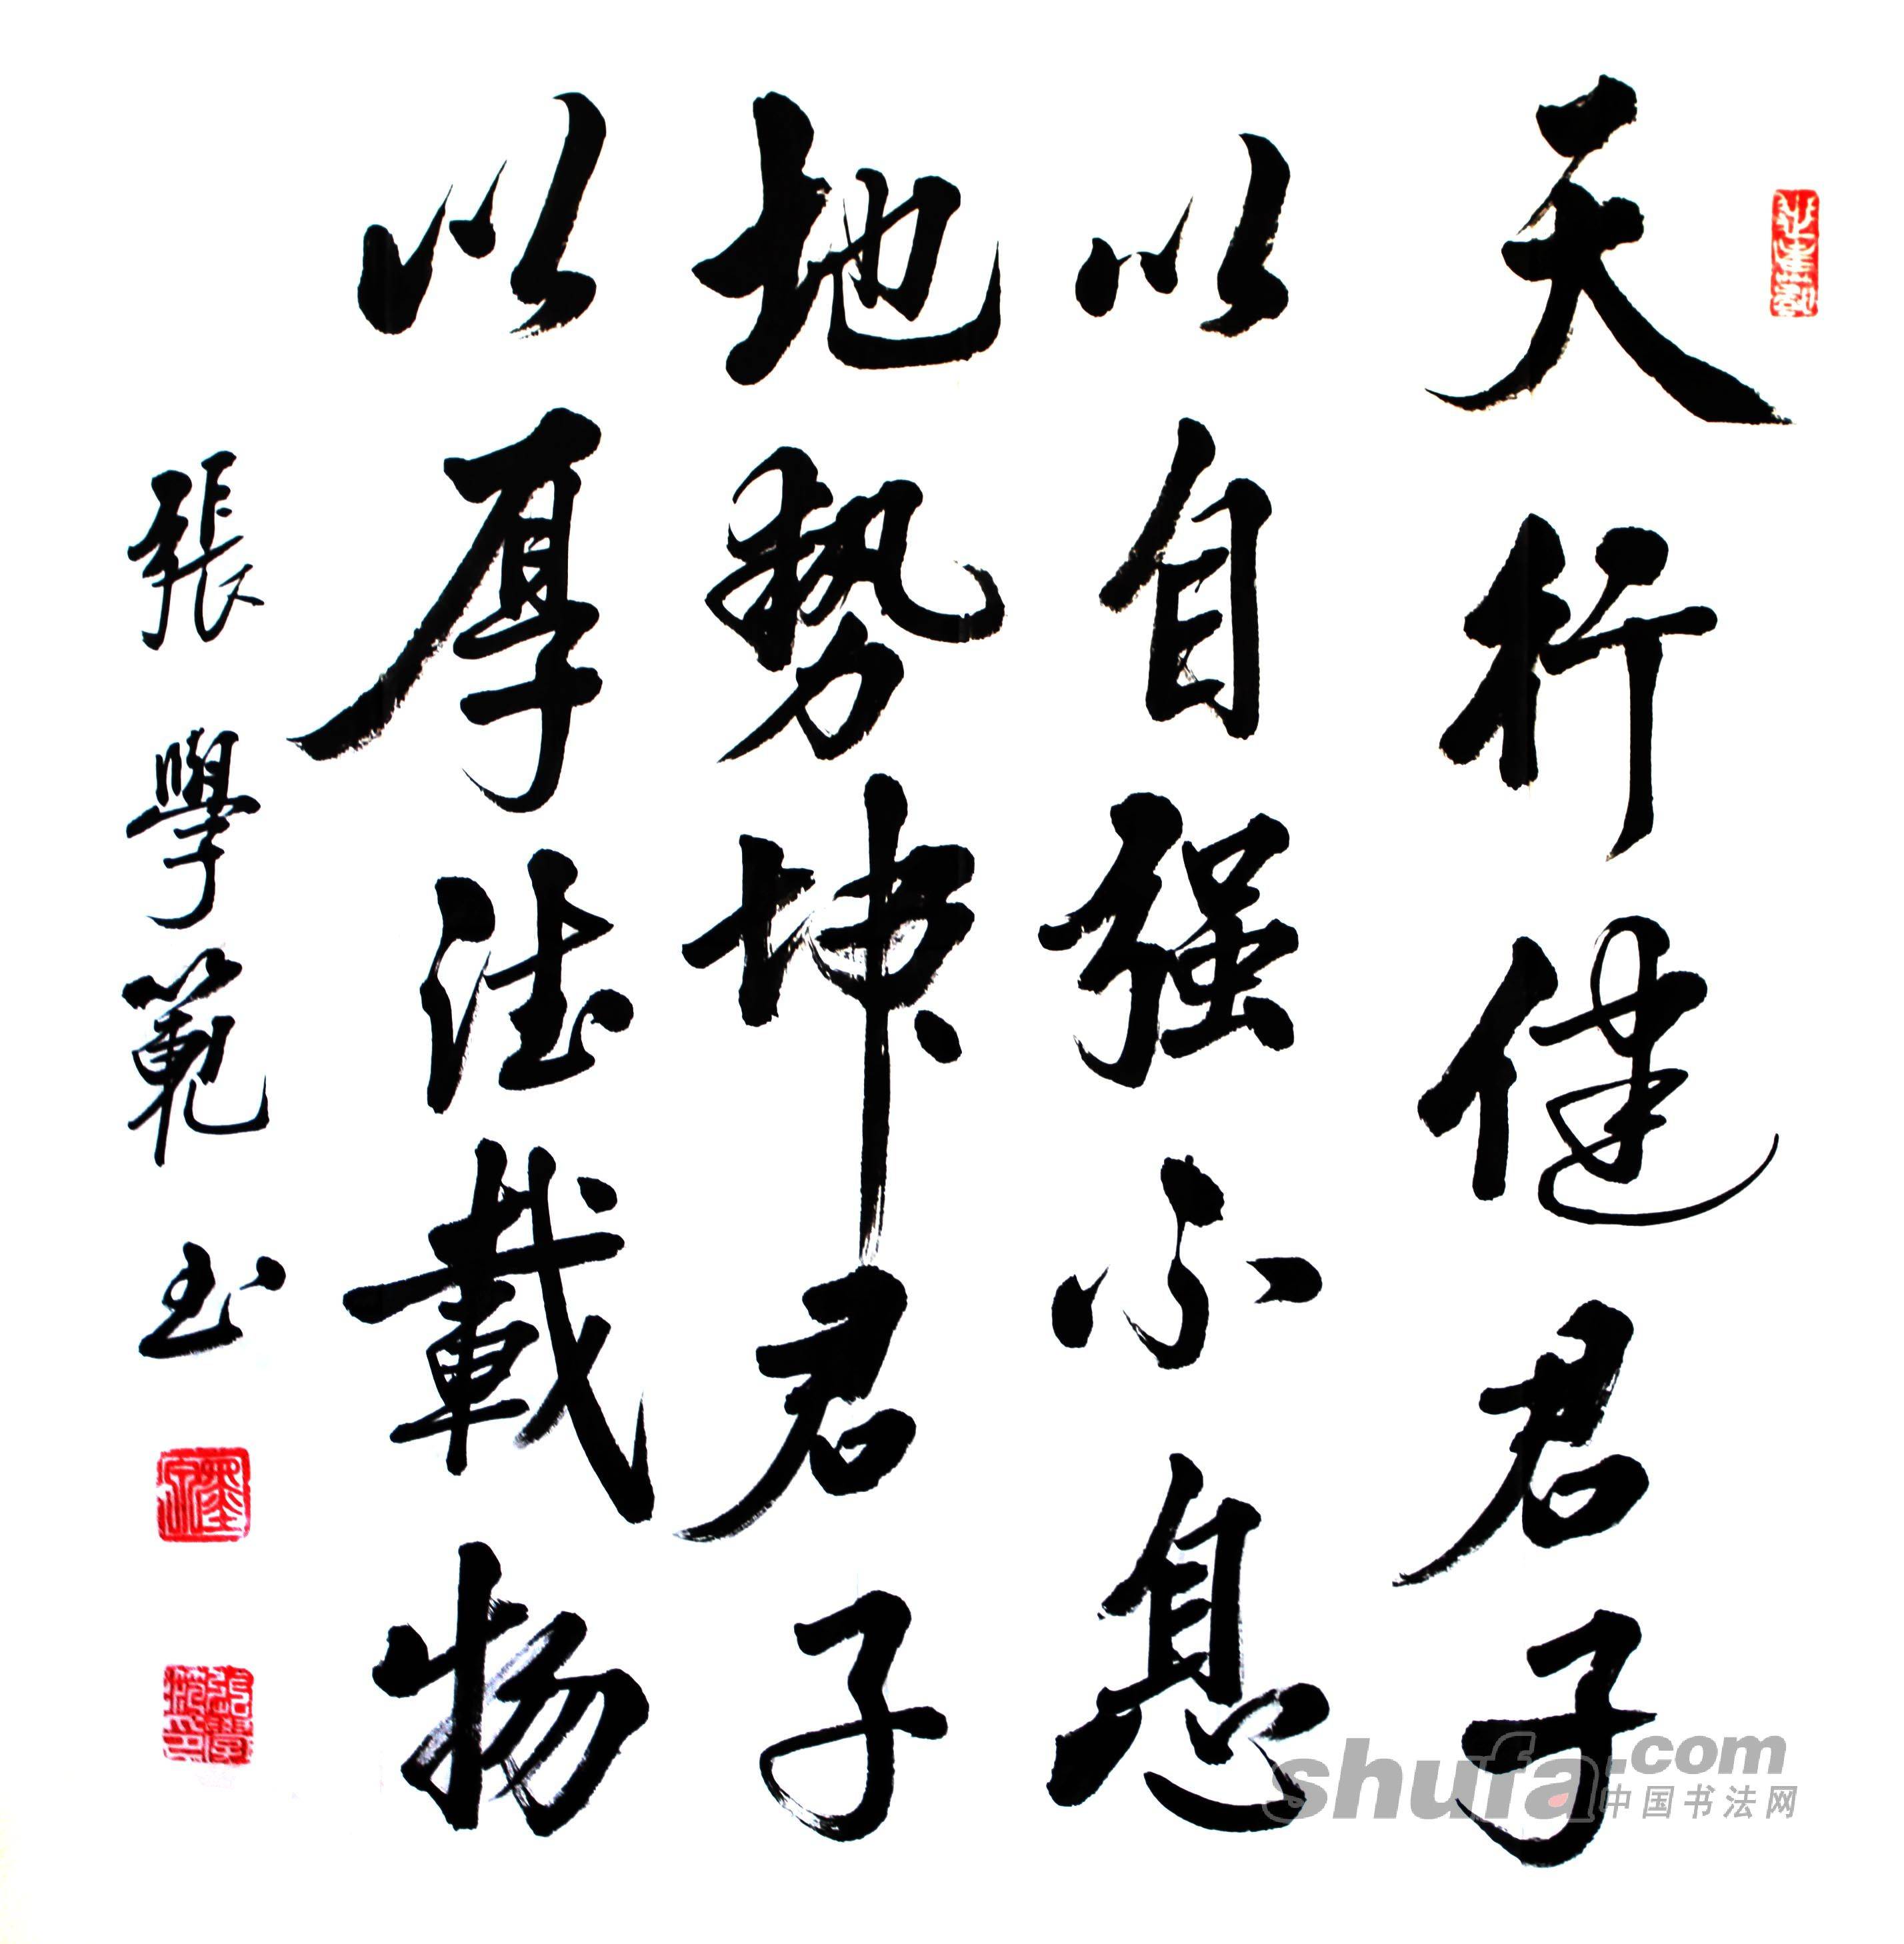 天行健君子
以自强不息
地勢坤君子
以厚德載物
張學範书
shufa.com
中国书法网